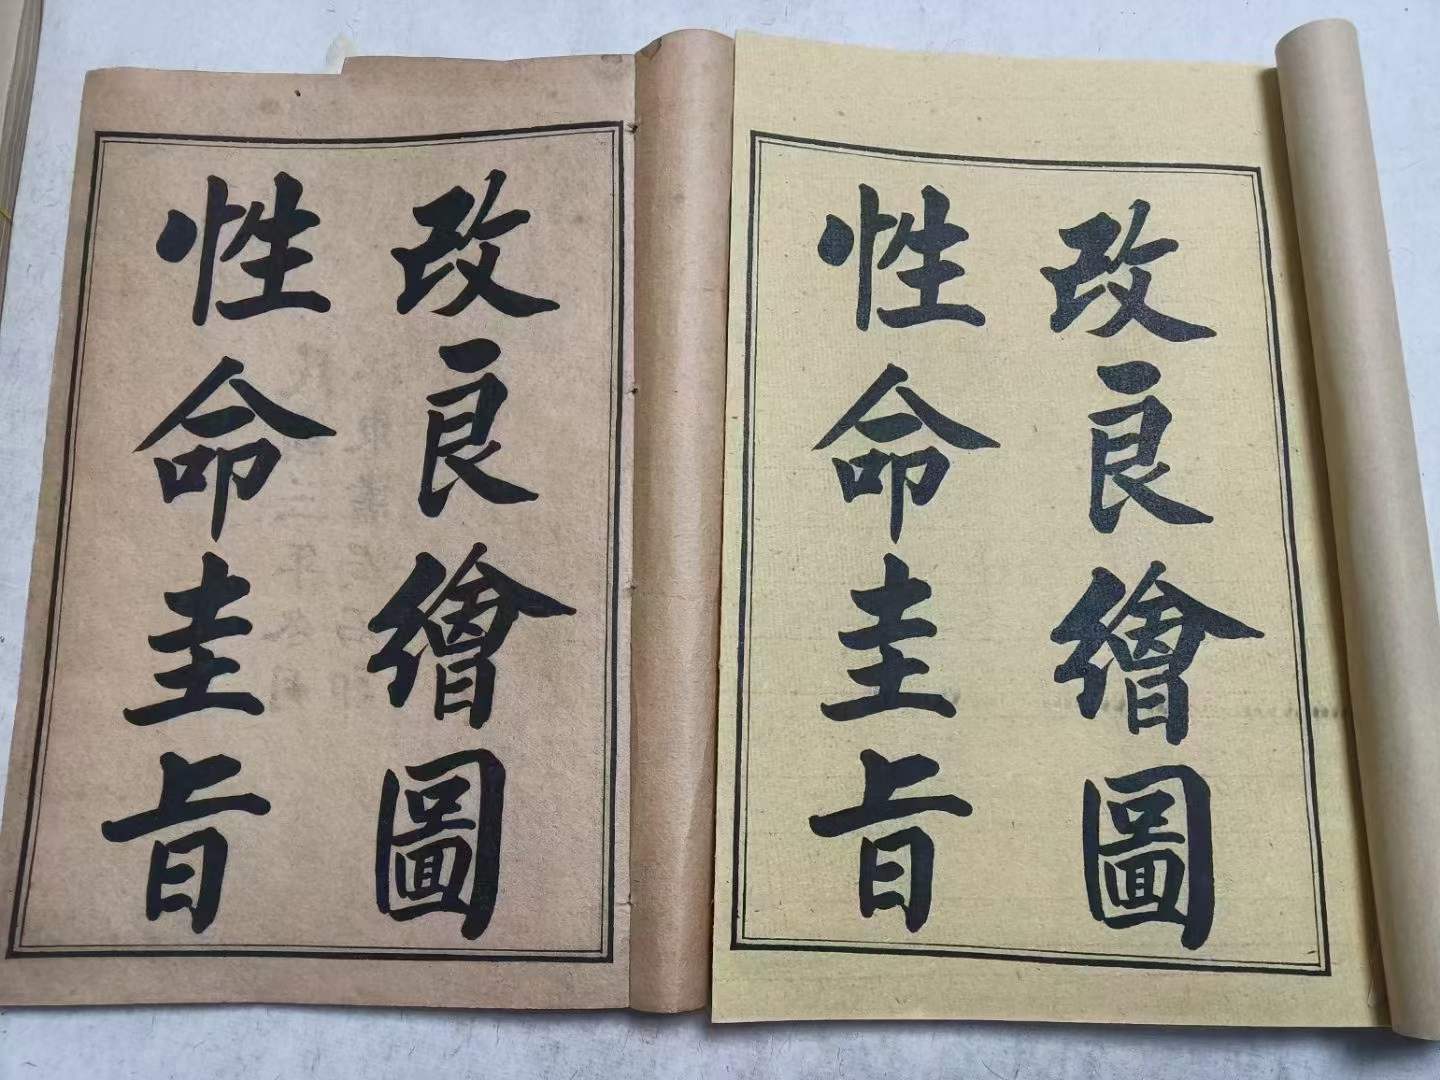 改良繪圖
性命圭旨
改良繪圖
性命圭旨